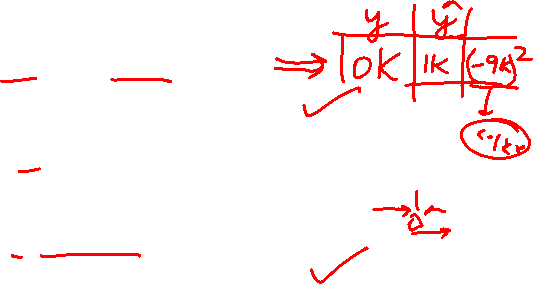 y ŷ
10K 1K (-9K)²